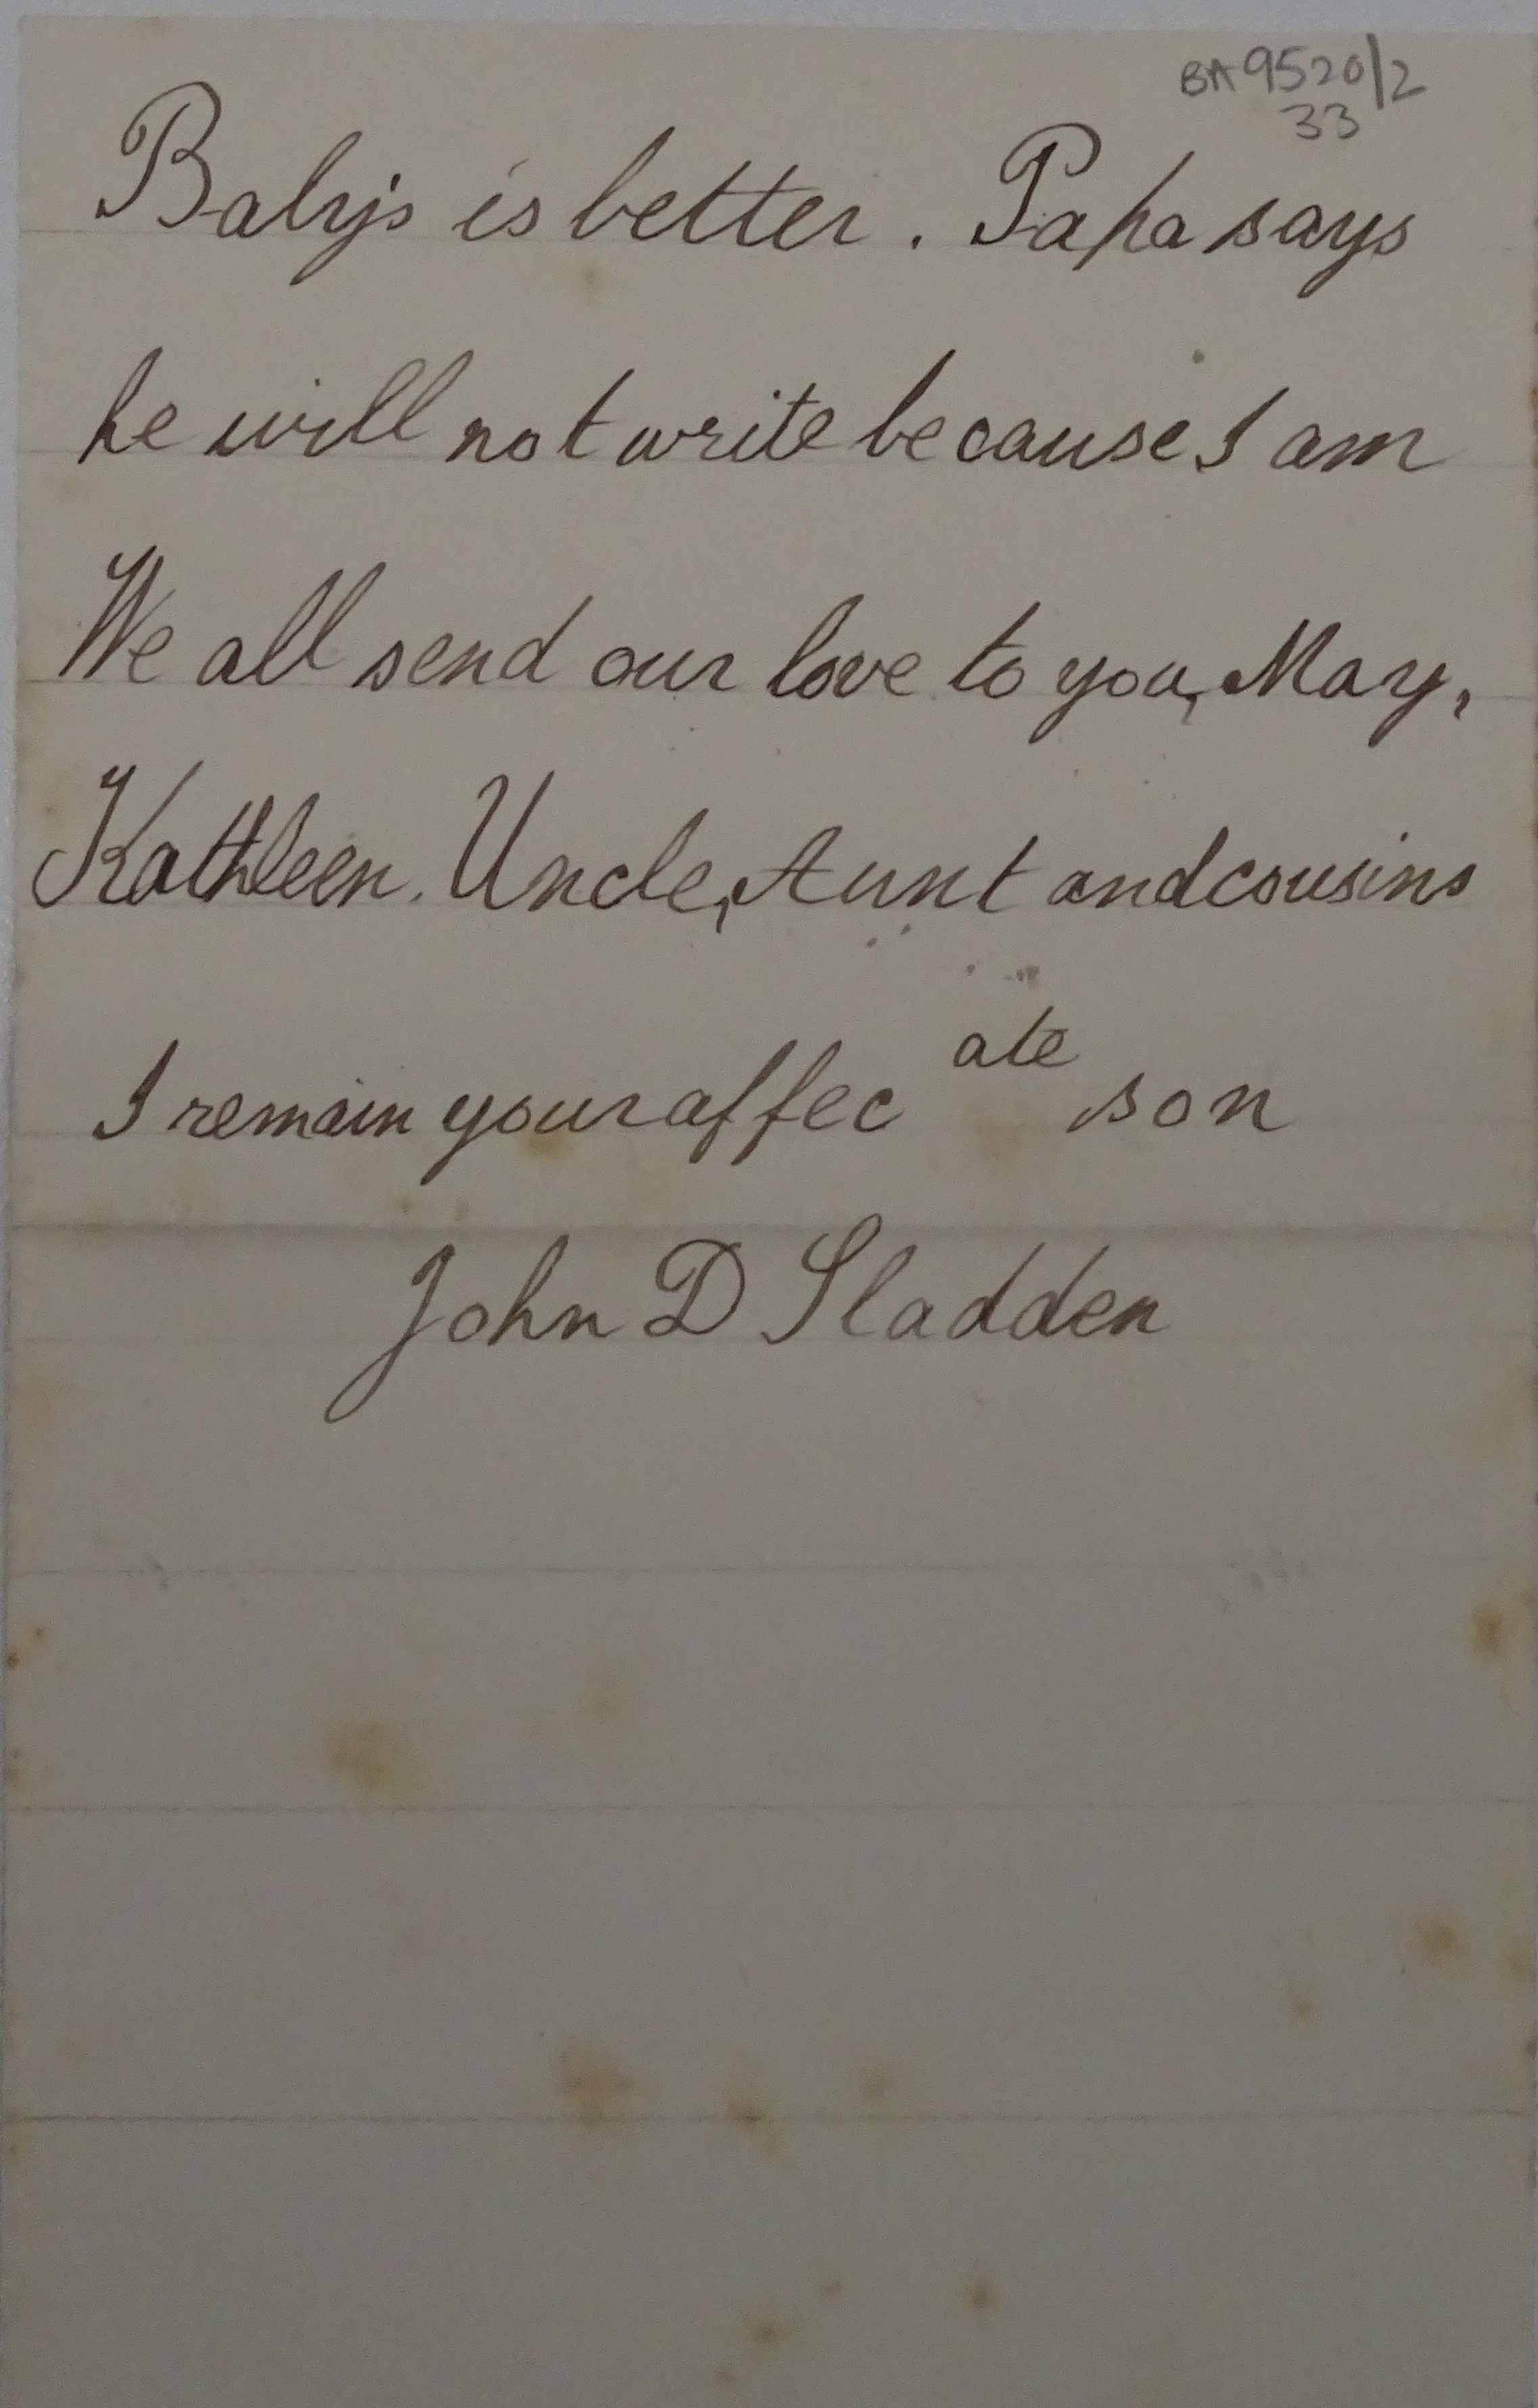 BA 9520/2
33
Baby's is better. Papa says
he will not write because I am
We all send our love to you, May,
Kathleen. Uncle, Aunt and cousins
I remain your affec ate son
John D Sladden